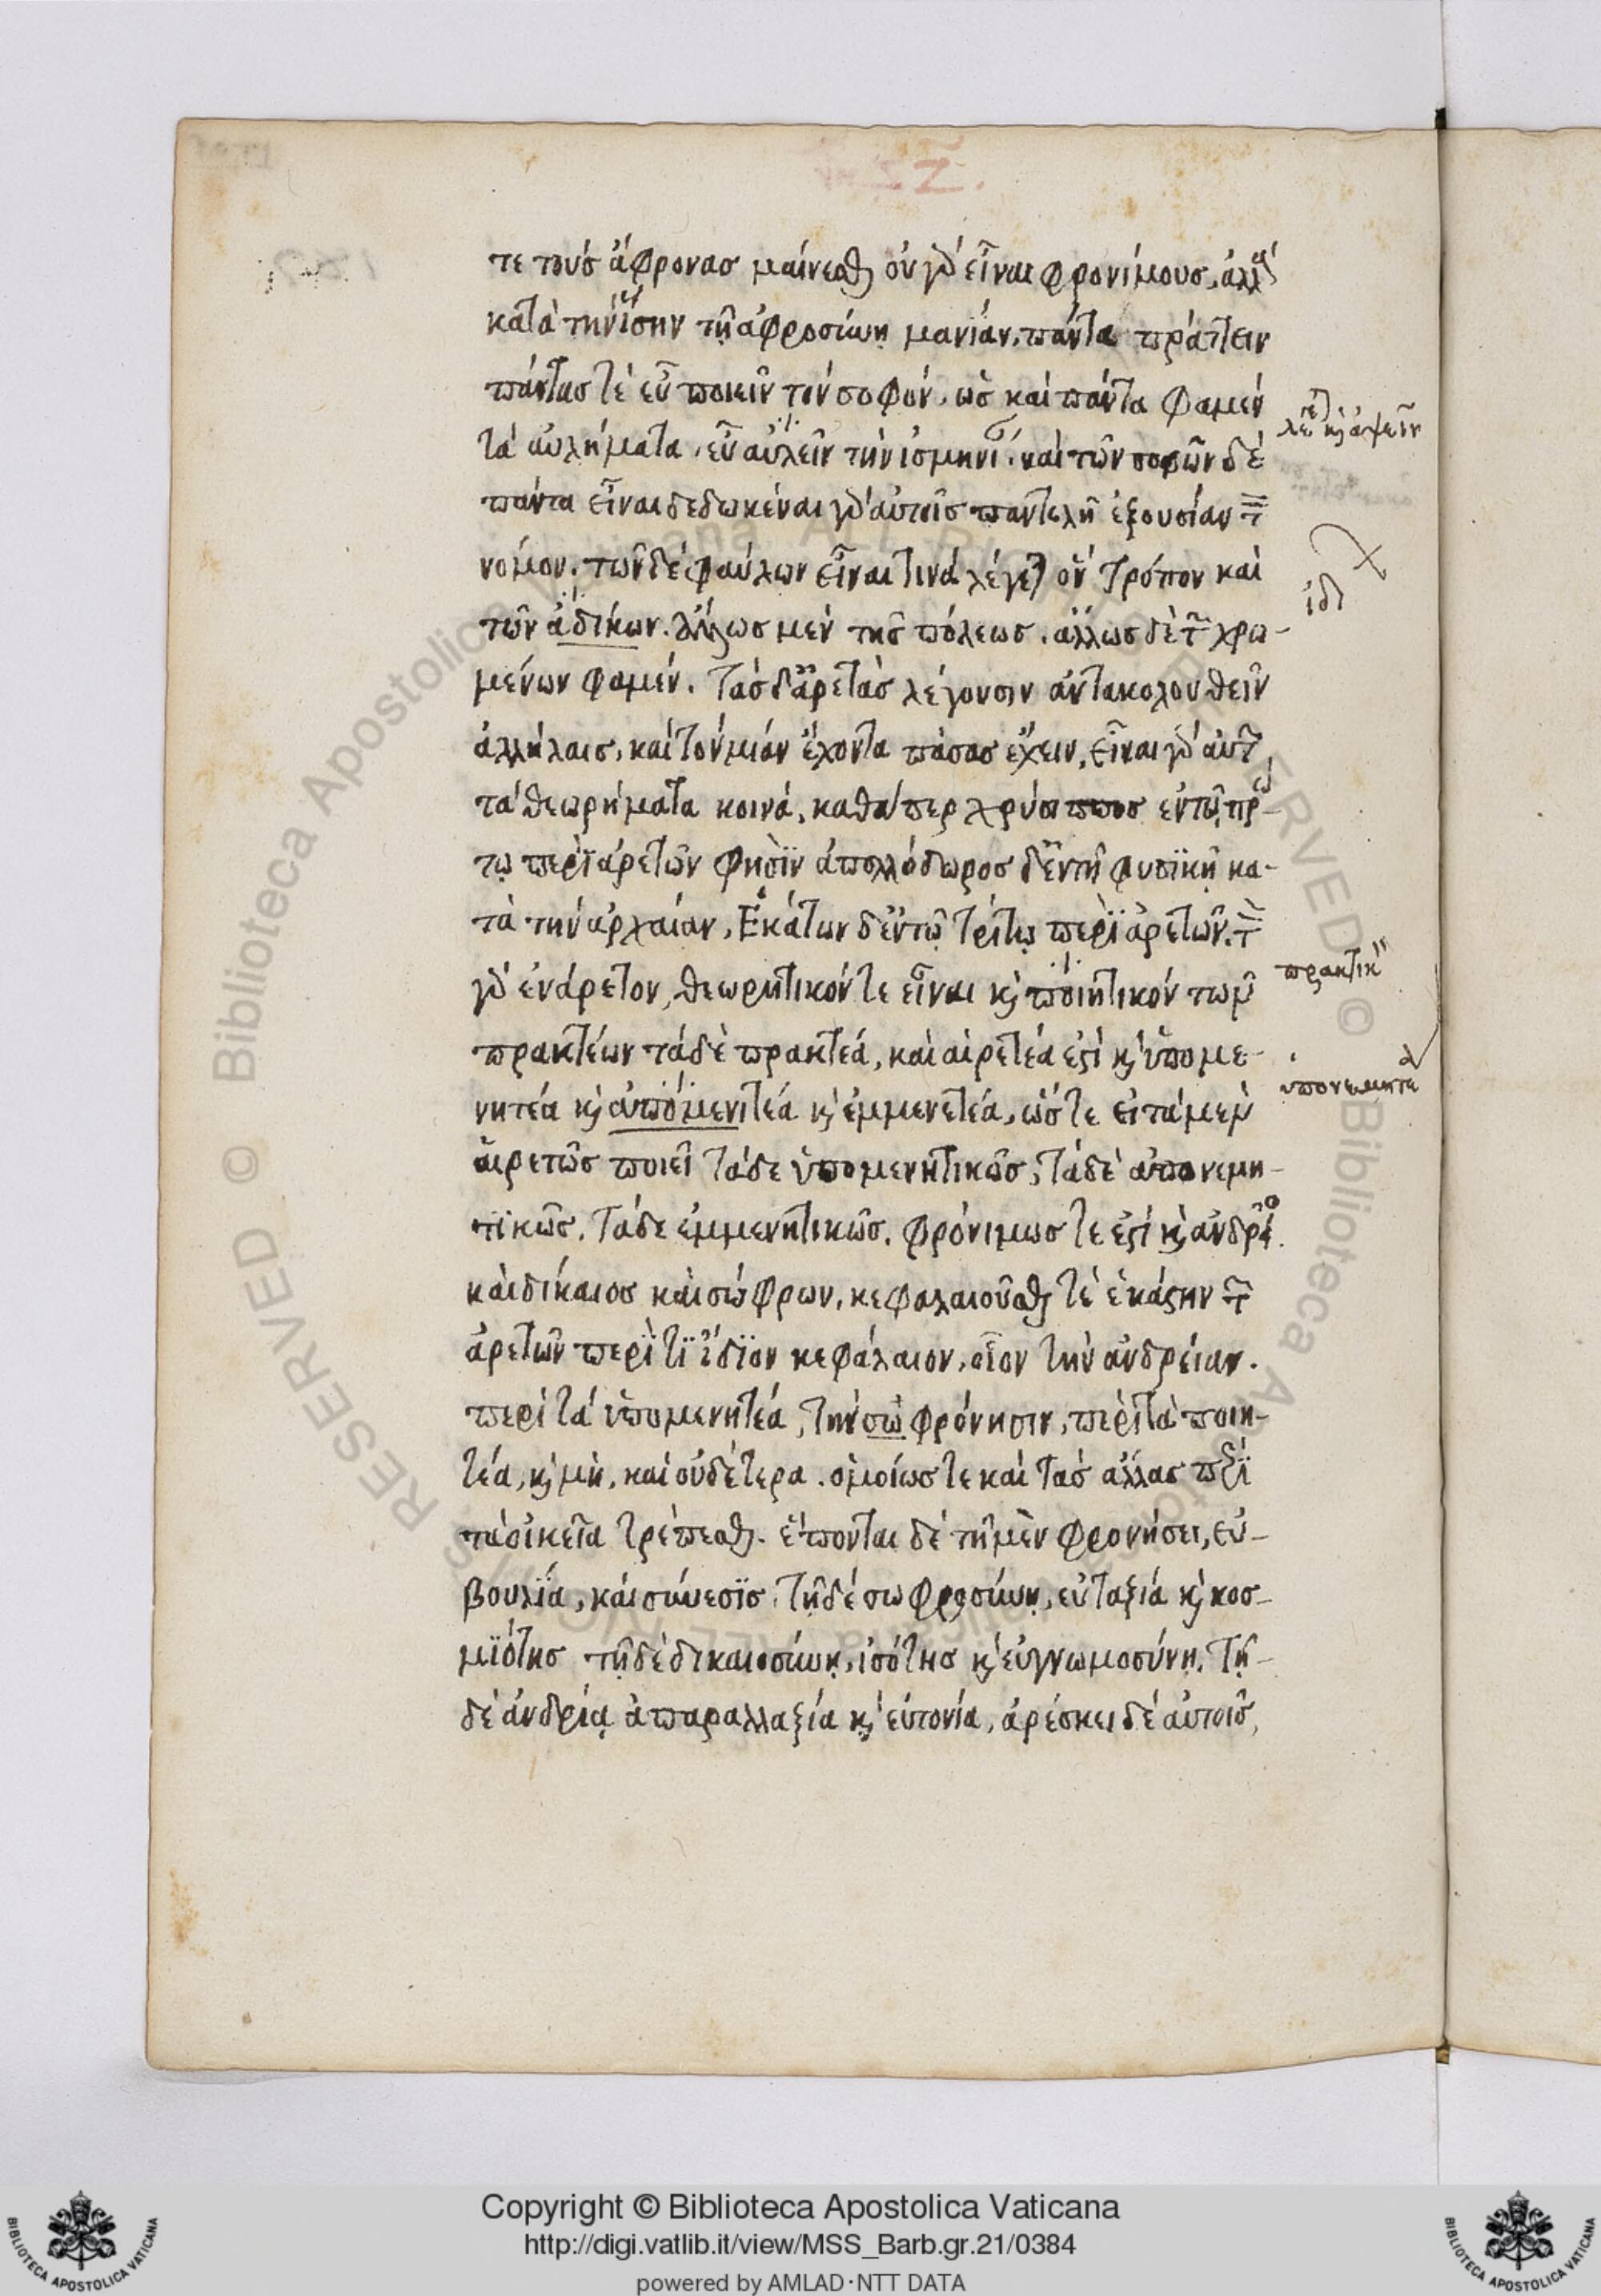 ΖΖ.
τε τοὺς ἄφρονας μαίνεσθαι οὐ γὰρ εἶναι φρονίμους, ἀλλὰ
κατὰ τὴν ἴσην τῇ ἀφροσύνῃ μανίαν, πάντα πράττειν
πάντας τὲ εὖ ποιεῖν τὸν σοφόν, ὡς καὶ πάντα φαμὲν
τὰ αὐλήματα, εὖ αὐλεῖν τὴν ἰσμηνί. καὶ τῶν σοφῶν δὲ
πάντα εἶναι δεδωκέναι γὰρ αὐτοῖς παντελῆ ἐξουσίαν τὸν
νόμον. τῶν δὲ φαύλων εἶναι τινὰ λέγεται ὃν τρόπον καὶ
ἰδ
τῶν ἀδίκων. ἄλλως μὲν τῆς πόλεως, ἄλλως δὲ τῶν χρω-
μένων φαμέν. Τὰς δ' ἀρετὰς λέγουσιν ἀντακολουθεῖν
ἀλλήλαις, καὶ τὸν μίαν ἔχοντα πάσας ἔχειν, εἶναι γὰρ αὐτῶν
τὰ θεωρήματα κοινά, καθάπερ χρύσιππος ἐν τῷ πρώ-
τῳ περὶ ἀρετῶν φησὶν ἀπολλόδωρος δ' ἐν τῇ φυσϊκῇ κα-
τὰ τὴν ἀρχαίαν, Ἑκάτων δ' ἐν τῷ τρίτῳ περὶ ἀρετῶν. τὸν
γὰρ ἐνάρετον, θεωρητικόν τε εἶναι κ̀ ποιητικὸν τῶν
πρακτικ
πρακτέων τὰ δὲ πρακτέα, καὶ αἱρετέα ἐστὶ κ̀ ὑπομε-
νητέα κ̀ ἀπομενιτέα κ̀ ἐμμενετέα, ὥστε εἰ τὰ μὲν
αἱρετῶς ποιεῖ τὰ δὲ ὑπομενητικῶς, τὰ δὲ ἀπονεμη-
τϊκῶς, τὰ δὲ ἐμμενητικῶς. φρόνιμως τε ἐστὶ κ̀ ἀνδρεῖος
καὶ δίκαιος καὶ σώφρων, κεφαλαιοῦσθαι τὲ ἑκάστην τῶν
ἀρετῶν περὶ τϊ ἴδϊον κεφάλαιον, οἷον τὴν ἀνδρείαν.
περὶ τὰ ὑπομενητέα, τὴν σω φρόνησιν, περὶ τὰ ποιη-
τέα, κ̀ μὴ, καὶ οὐδέτερα. ὁμοίως τε καὶ τὰς ἄλλας περὶ
τὰ οἰκεῖα τρέπεσθαι. ἕπονται δὲ τῇ μὲν φρονήσει, εὐ-
βουλία, καὶ σύνεσϊς. τῇ δὲ σωφροσύνῃ, εὐταξία κ̀ κοσ-
μϊότης τῇ δὲ δικαιοσύνῃ, ἰσότης κ̀ εὐγνωμοσύνῃ. Τῇ-
δὲ ἀνδρίᾳ ἀπαραλλαξία κ̀ εὐτονία, ἀρέσκει δὲ αὐτοῖς,
Copyright © Biblioteca Apostolica Vaticana
http://digi.vatlib.it/view/MSS_Barb.gr.21/0384
powered by AMLAD·NTT DATA
BIBLIOTECA APOSTOLICA VATICANA
BIBLIOTECA APOSTOLICA VATICANA